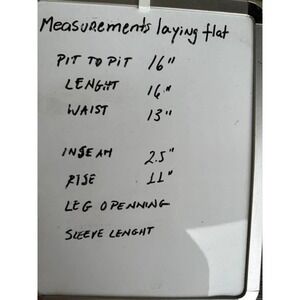 Measurements laying flat
PIT TO PIT 16"
LENGHT 16"
WAIST 13"
INSEAM 2.5"
RISE 11"
LEG OPENNING
SLEEVE LENGHT